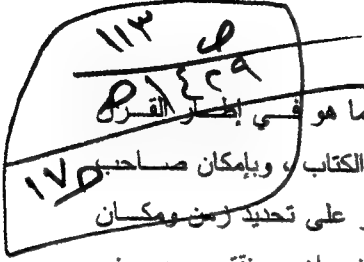 ١١٣ ص
١٤٢٩ ص
ما هو في إطار القرن
١٧ ص
الكتاب ، وبإمكان صاحب
على تحديد زمن ومكان